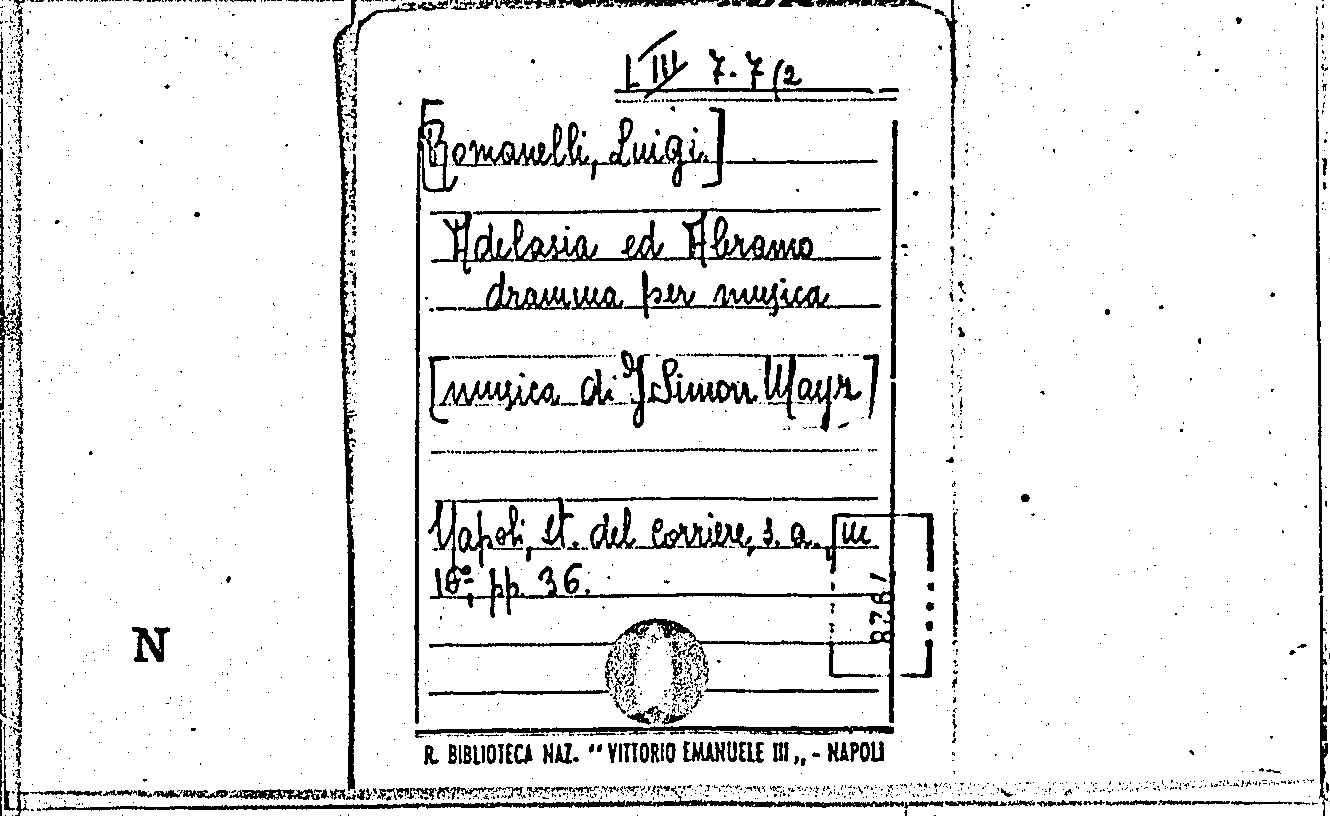 L III 7.7/2
[Romanelli, Luigi.]
Adelasia ed Aleramo
dramma per musica
[musica di G Simon Mayr]
Napoli, st. del Corriere, s. a., in
16º, pp. 36.
1928
N
R. BIBLIOTECA NAZ. “ VITTORIO EMANUELE III „ - NAPOLI